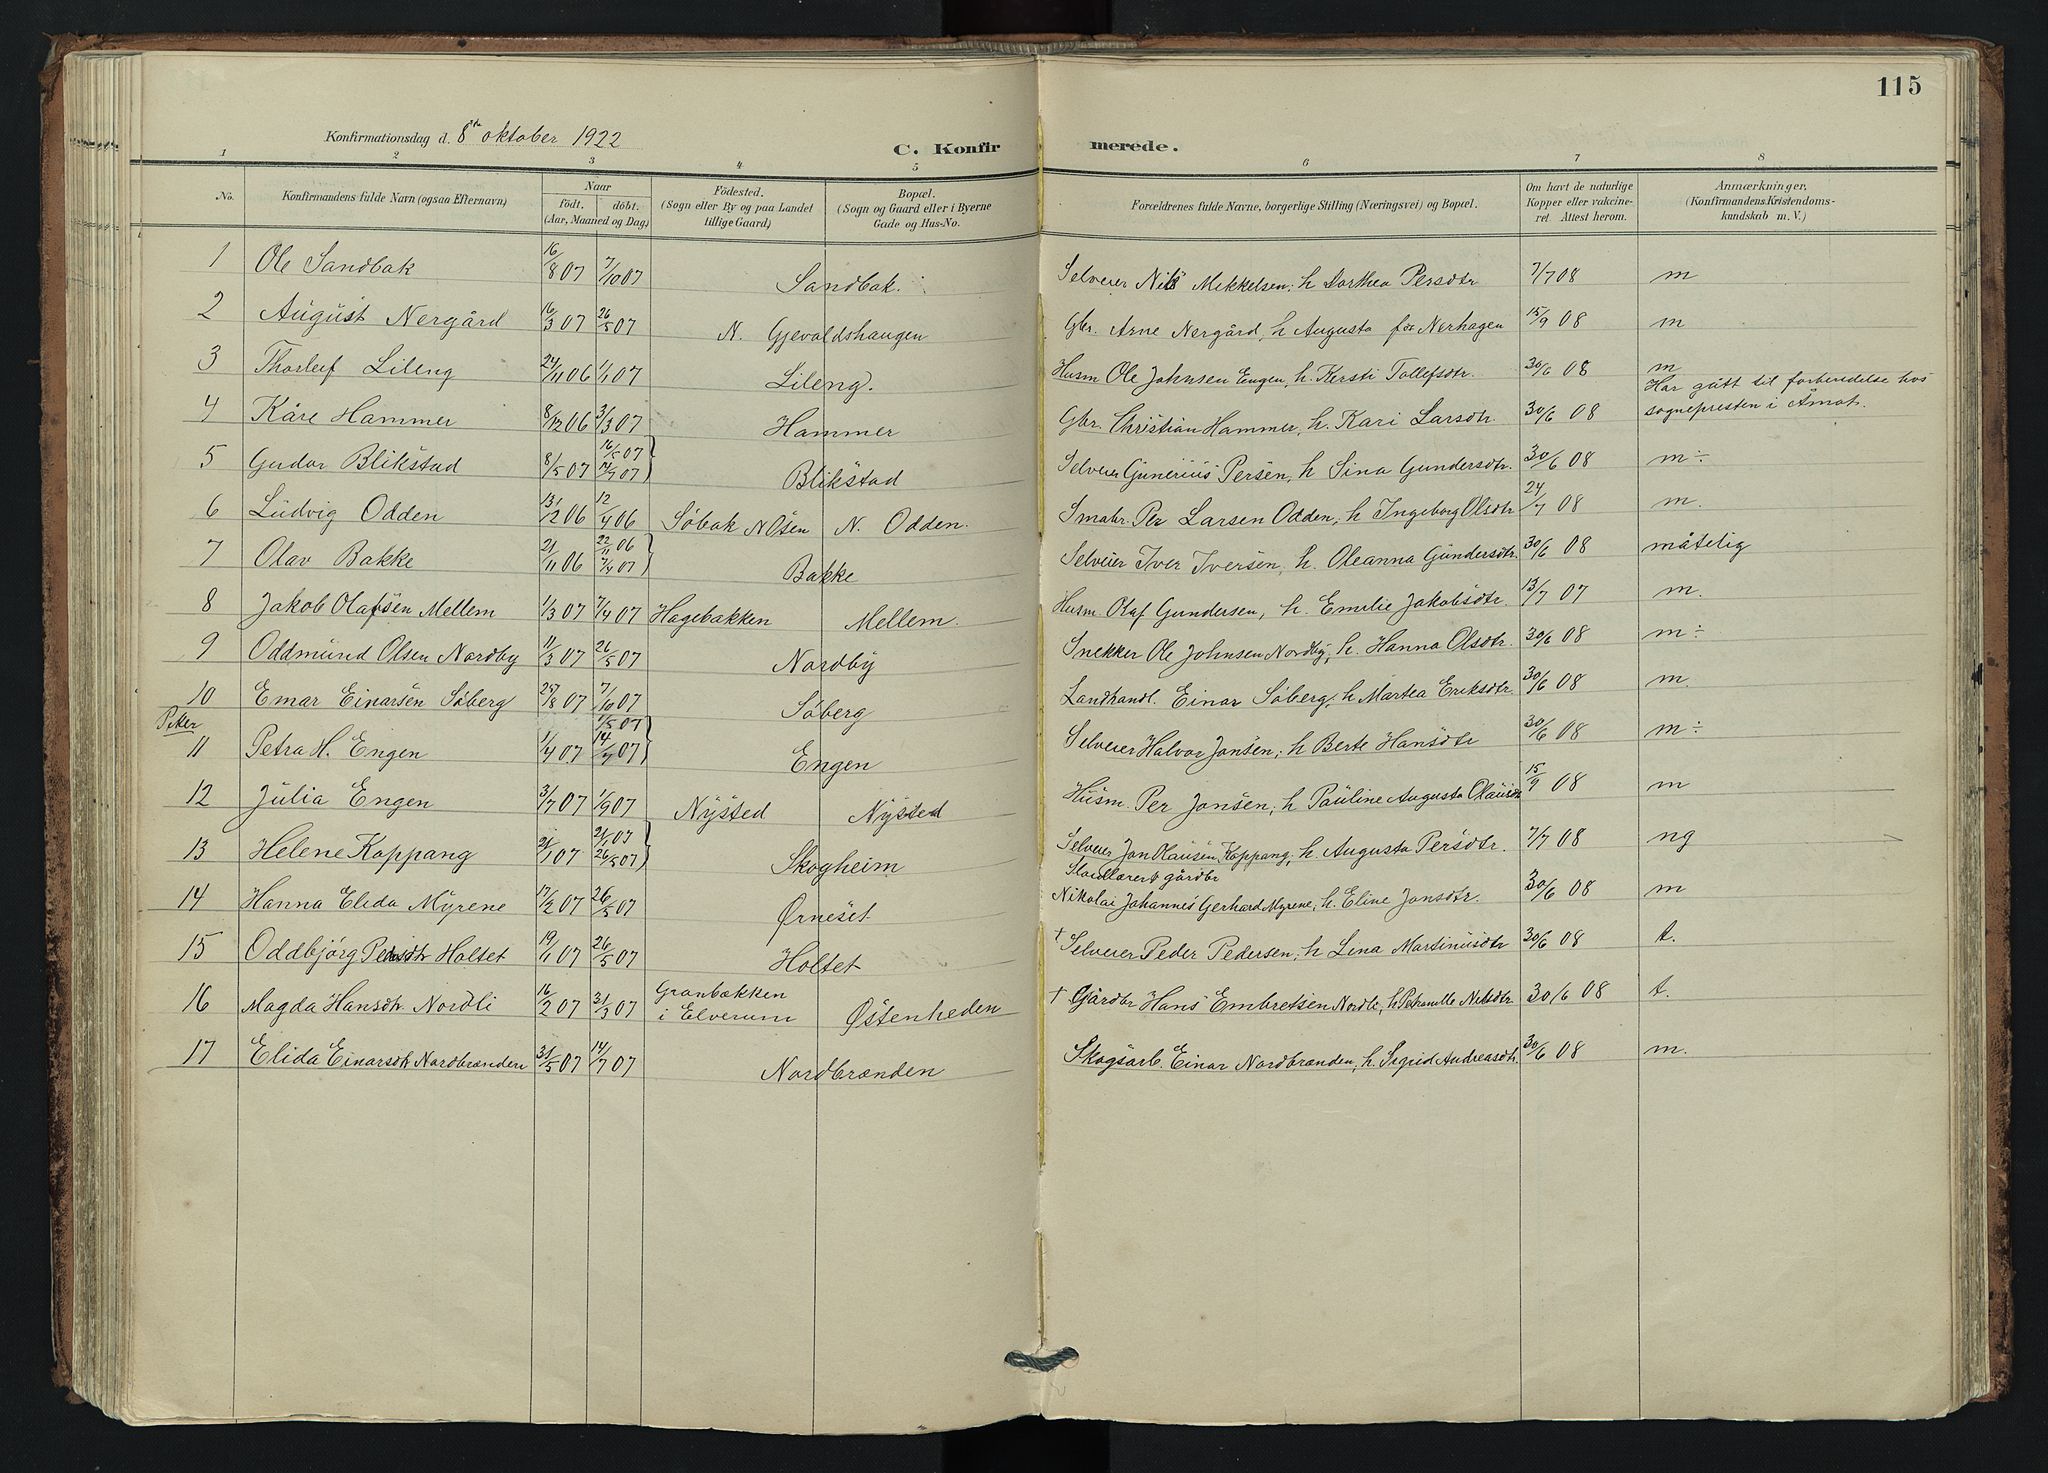 115
Konfirmationsdag d. 8de oktober 1922
C. Konfirmerede.
1 2 3 4 5 6 7 8
No. Konfirmandens fulde Navn (ogsaa Efternavn) Naar født. døbt. (Aar, Maaned og Dag) Födested. (Sogn eller By og paa Landet tillige Gaard) Bopæl. (Sogn og Gaard eller i Byerne Gade og Hus-No. Forældrenes fulde Navne, borgerlige Stilling (Næringsvei) og Bopæl. Om havt de naturlige Kopper eller vakcineret. Attest herom. Anmærkninger. (Konfirmandens Kristendomskundskab m. V.)
1 Ole Sandbak 16/8 07 7/10 07 Sandbak. Selveier Nils Mikkelsen; h Dorthea Persdtr 7/7 08 m
2 August Nergård 16/3 07 26/5 07 N. Gjevaldshaugen Gbr. Arne Nergård, h Augusta før Nerhagen 15/9 08 m
3 Thorleif Lileng 24/11 06 1/1 07 Lileng. Husm Ole Johnsen Engen, h. Kersti Tollefsdtr. 30/6 08 m
4 Kåre Hammer 8/12 06 3/3 07 Hammer Gbr. Christian Hammer, h. Kari Larsdtr 30/6 08 Har gått til forberedelse hos sognepresten i Åmot.
5 Gudor Blikstad 8/5 07 16/5 07 7/7 07 Blikstad Selveier Gunerius Persen, h Sina Gundersdtr. 30/6 08 m÷
6 Ludvig Odden 13/12 06 12/4 06 Søbak N Osen N. Odden. Smabr. Per Larsen Odden; h Ingeborg Olsdtr 24/7 08 m.
7 Olav Bakke 21/11 06 22/11 06 7/4 07 Bakke Selveier Iver Iversen, h. Oleanna Gundersdtr. 30/6 08 måtelig
8 Jakob Olafsen Mellem 1/3 07 7/4 07 Hagebakken Mellem. Husm. Olaf Gundersen, h. Emilie Jakobsdtr. 13/7 07 m.
9 Oddmund Olsen Nordby 11/3 07 26/5 07 Nordby Snekker Ole Johnsen Nordby, h. Hanna Olsdtr. 30/6 08 m÷
10 Emar Einarsen Søberg 25/8 07 7/10 07 Søberg Landhandl. Einar Søberg, h Martea Eriksdtr. 30/6 08 m.
Piker
11 Petra H. Engen 1/4 07 1/5 07 14/7 07 Engen Selveier Halvor Jonsen; h Berte Hansdtr 30/6 08 m÷
12 Julia Engen 3/7 07 1/9 07 Nysted Nysted Husm. Per Jonsen; h Pauline Augusta Olausdtr 15/9 08 m
13 Helene Koppang 21/1 07 21/1 07 26/5 07 Skogheim Selveier Jon Olausen Koppang, h. Augusta Persdtr. 7/7 08 ng
14 Hanna Elida Myrene 17/2 07 26/5 07 Ørneset gårdbr Nikolai Johannes Gerhard Myrene; h. Eline Jonsdtr. 30/6 08 m
15 Oddbjørg Pedersdtr Holtet 19/1 07 26/5 07 Holtet † Selveier Peder Pedersen; h Lina Martinusdtr 30/6 08 t.
16 Magda Hansdtr Nordli 16/2 07 31/3 07 Granbækken i Elverum Østenheden † Gårdbr Hans Embretsen Nordli, h Petronille Nilsdtr 30/6 08 t.
17 Elida Einarsdtr Nordbrænden 31/5 07 14/7 07 Nordbrænden Skogsarb. Einar Nordbrænden, h. Sigrid Andreasdtr. 30/6 08 m.